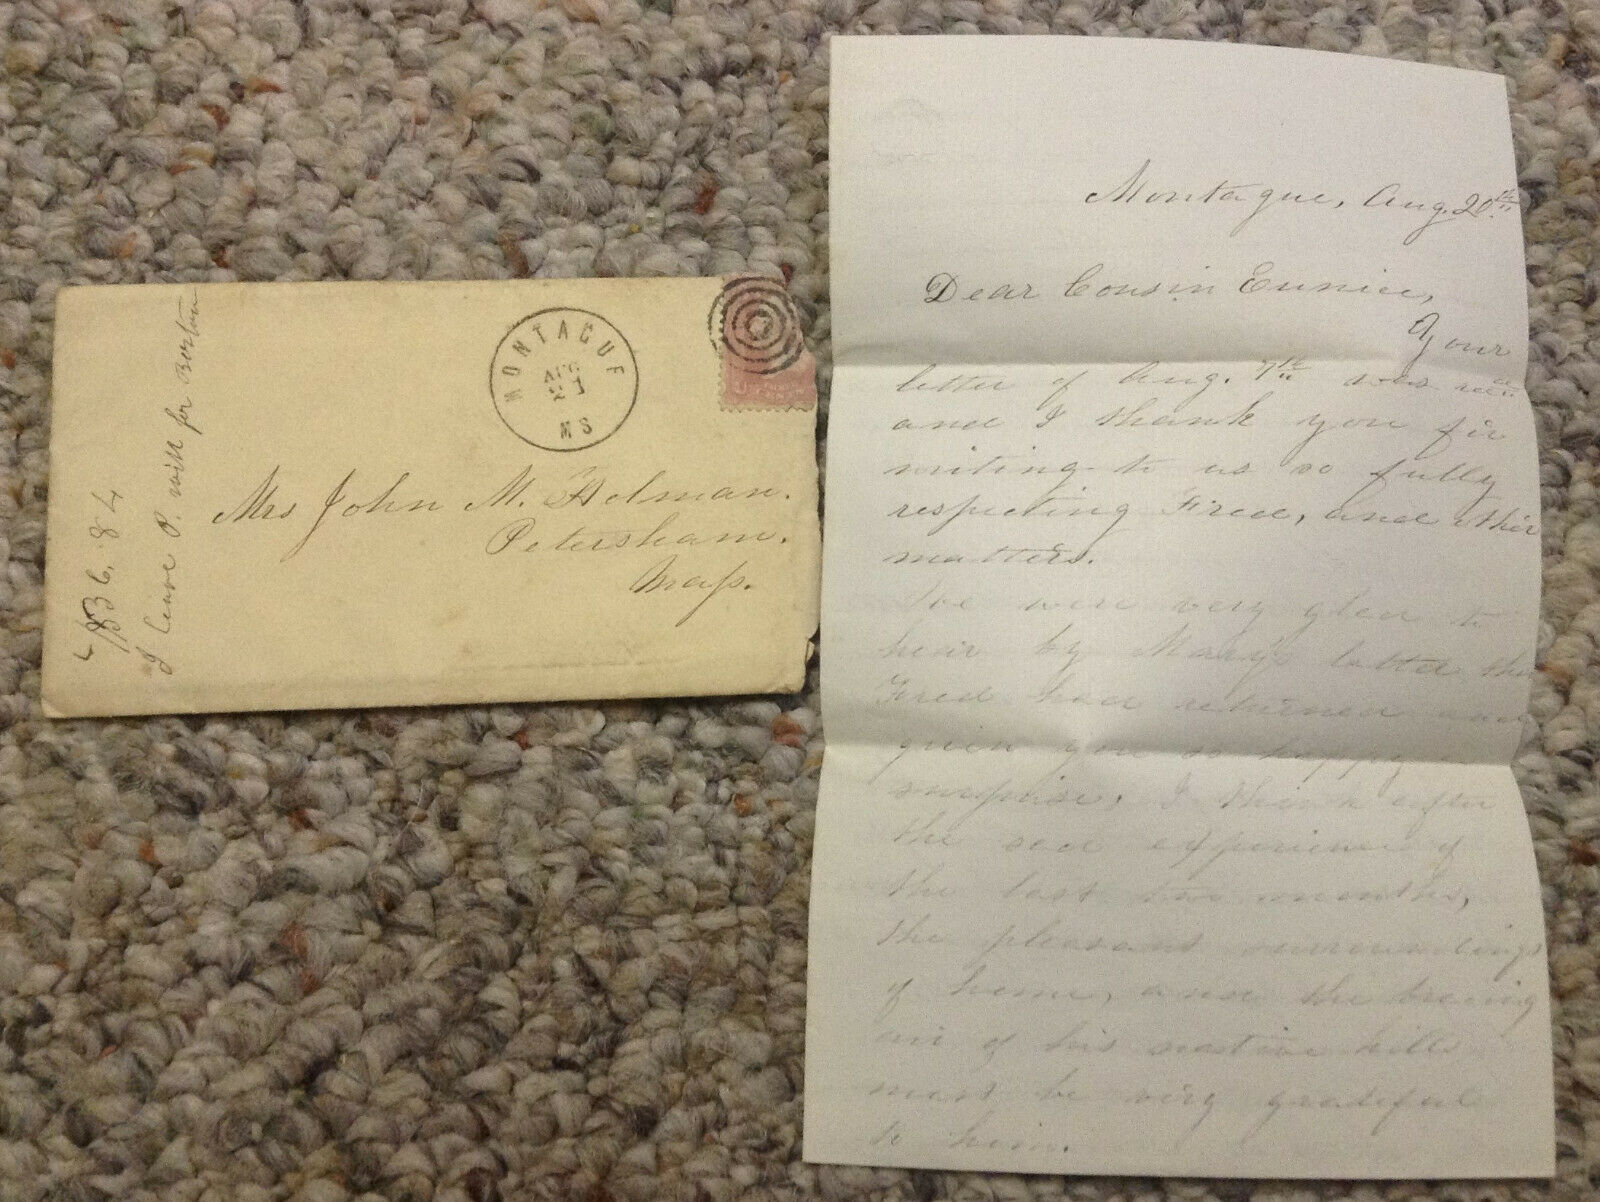 MONTAGUE
AUG
21
MS
Mrs John M. Holman.
Petersham.
Mass.
I leave P. will for Boston
Montague, Aug. 20th
Dear Cousin Eunice,
Your
letter of Aug. 7th was recd
and I thank you for
writing to us so fully
respecting Fred, and other
matters.
We were very glad to
hear by Mary's letter that
Fred had returned and
given you so happy a
surprise. I think after
the sad experience of
the last two months,
the pleasant surroundings
of home, and the bracing
air of his native hills
must be very grateful
to him.